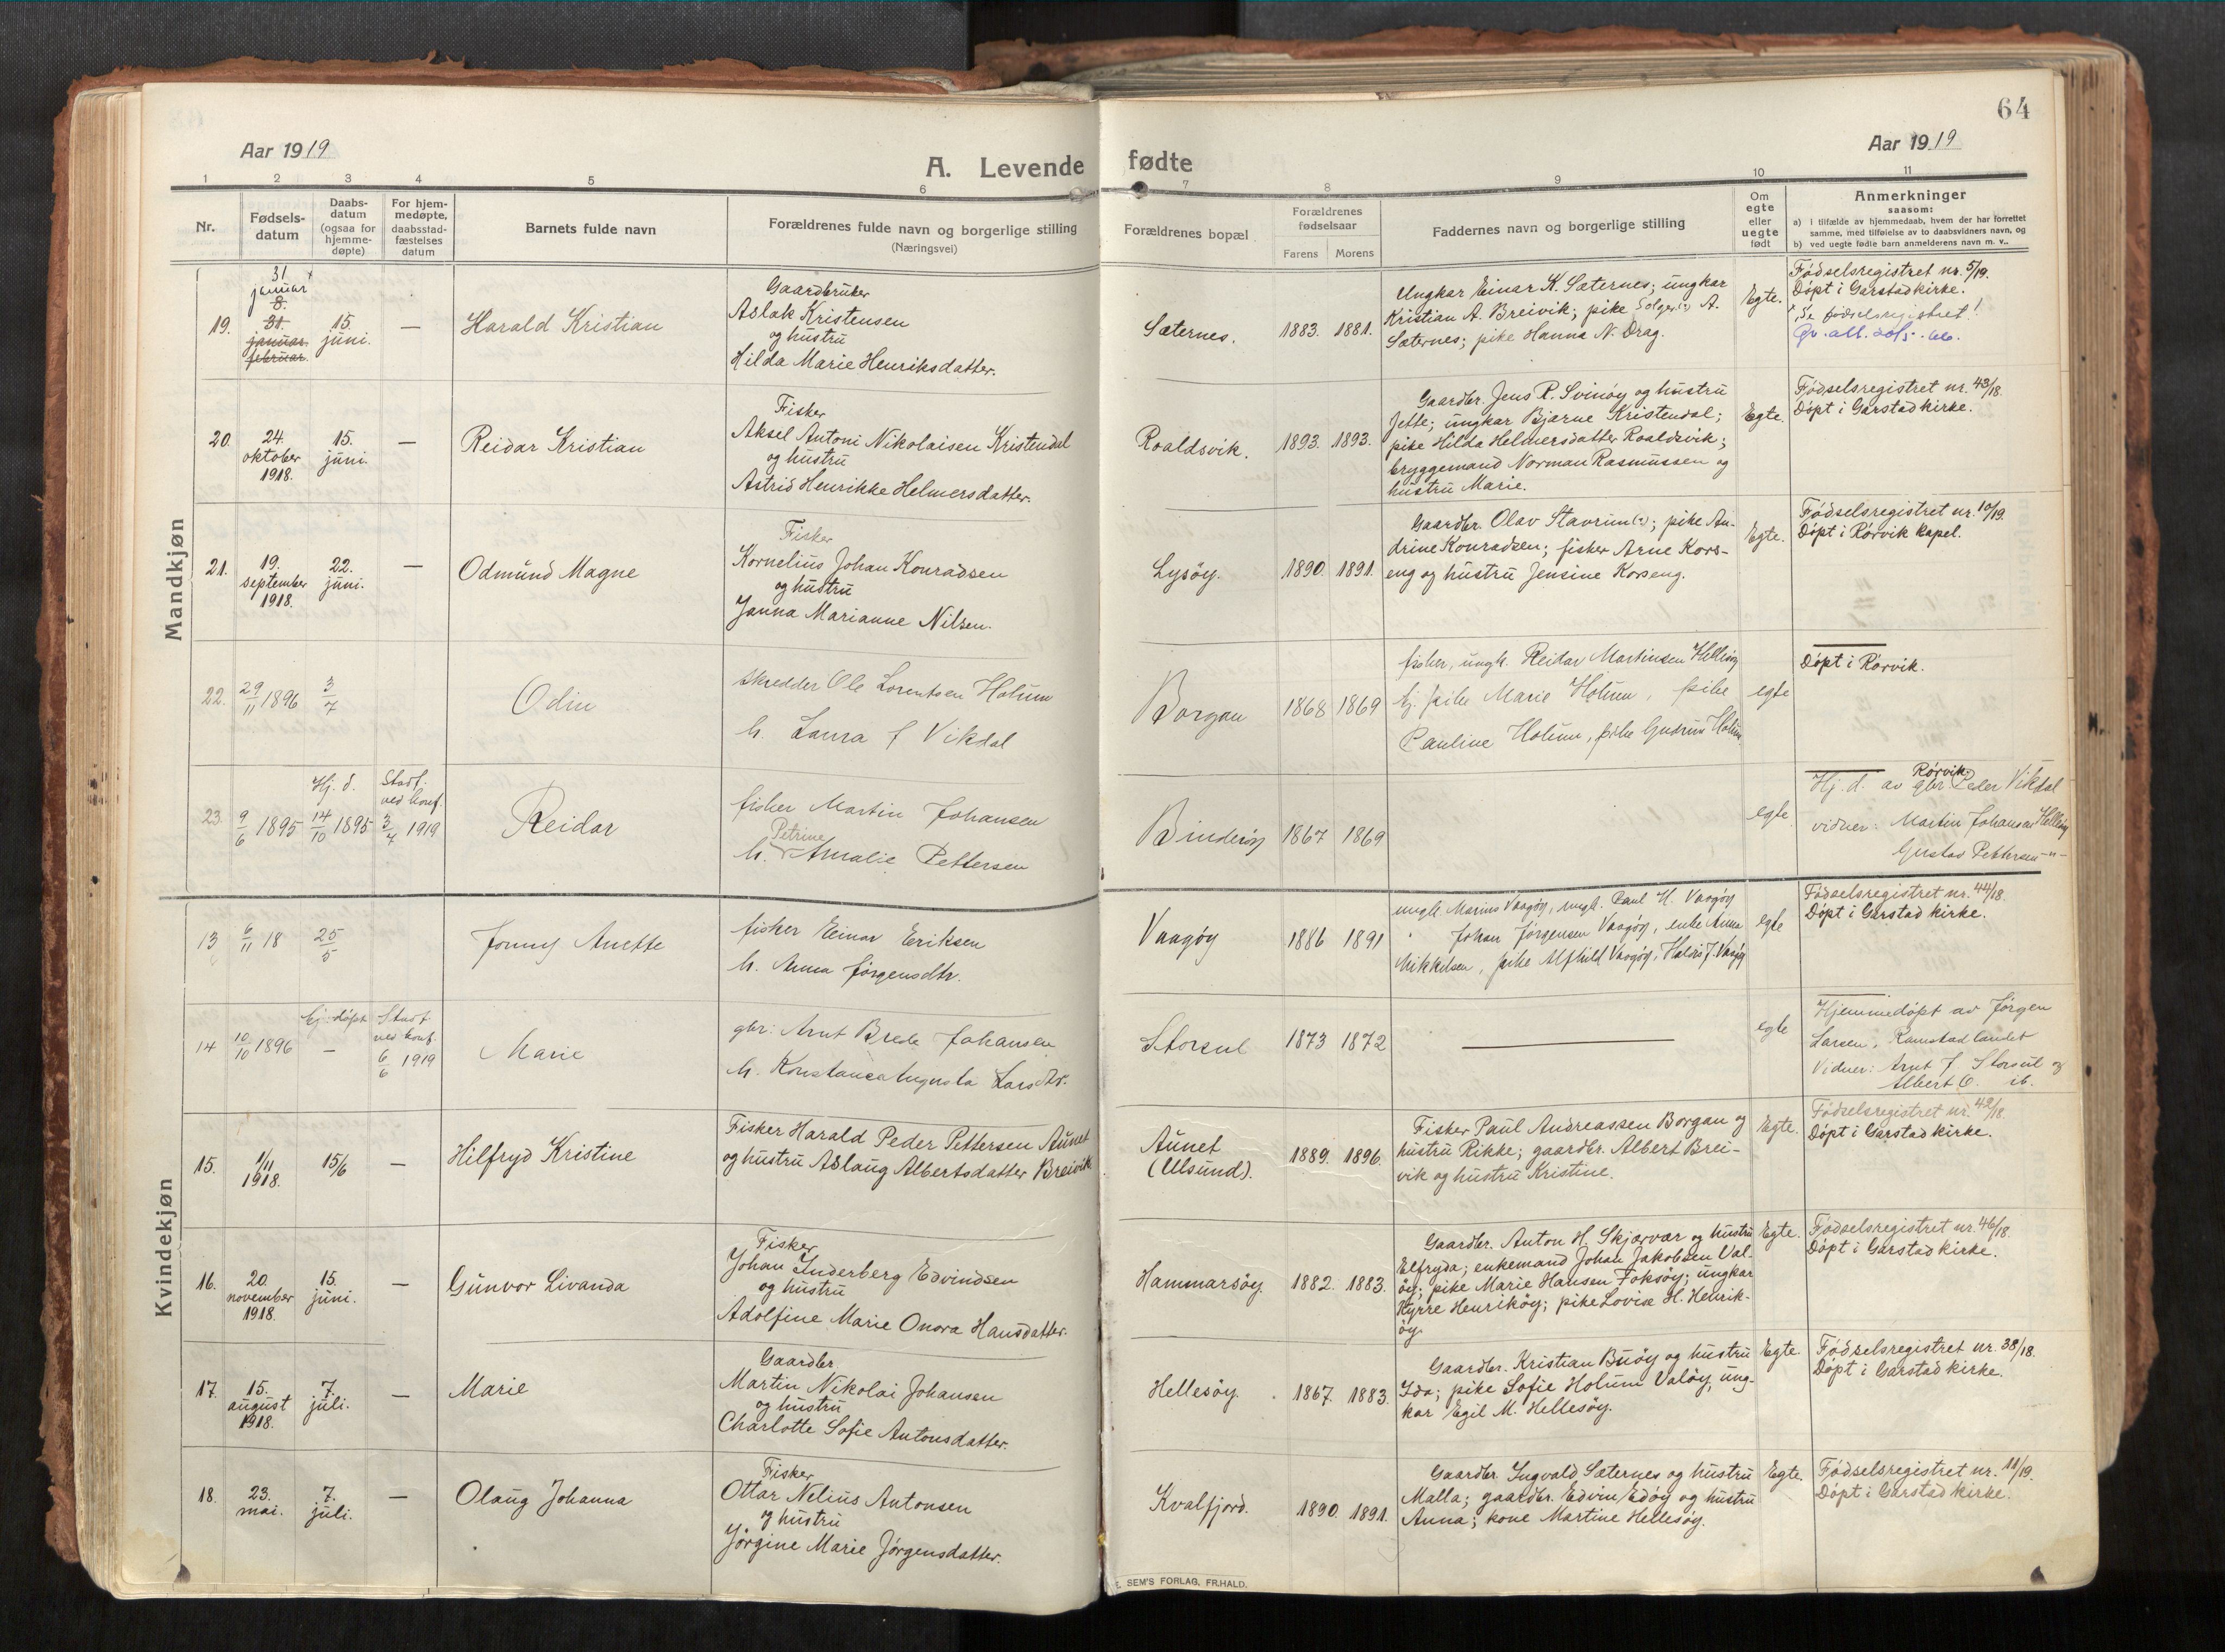 64
Aar 1919
A. Levende fødte
Aar 1919
1 2 3 4 5 6 7 8 9 10 11
Nr.
Fødsels-
datum
Daabs-
datum
(ogsaa for
hjemme-
døpte)
For hjem-
medøpte,
daabsstad-
fæstelses
datum
Barnets fulde navn
Forældrenes fulde navn og borgerlige stilling
(Næringsvei)
Forældrenes bopæl
Forældrenes
fødselsaar
Farens Morens
Faddernes navn og borgerlige stilling
Om
egte
eller
uegte
født
Anmerkninger
saasom:
a) i tilfælde av hjemmedaab, hvem der har forrettet
samme, med tilføielse av to daabsvidners navn, og
b) ved uegte fødte barn anmelderens navn m. v..
Mandkjøn
19.
31 x
januar
8.
31.
januar.
februar.
15.
juni.
—
Harald Kristian
Gaardbruker
Aslak Kristensen
og hustru
Hilda Marie Henriksdatter.
Sæternes.
1883. 1881.
Ungkar Einar K. Sæternes; ungkar
Kristian A. Breivik; pike Solge(?) A.
Sæternes; pike Hanna N. Drag.
Egte.
Fødselsregistret nr. 5/19.
Døpt i Garstad kirke.
x Se fødselsregistret!
20.
24.
oktober
1918.
15.
juni.
—
Reidar Kristian
Fisker
Aksel Antoni Nikolaisen Kristendal
og hustru
Astrid Henrikke Helmersdatter.
Roaldsvik.
1893. 1893.
Gaardbr. Jens R. Svinøy og hustru
Jette; ungkar Bjarne Kristendal;
pike Hilda Helmersdatter Roaldsvik;
bryggemand Norman Rasmussen og
hustru Marie.
Egte.
Fødselsregistret nr. 43/18.
Døpt i Garstad kirke.
21.
19.
september
1918.
22.
juni.
—
Odmund Magne
Fisker
Kornelius Johan Konradsen
og hustru
Janna Marianne Nilsen.
Lysøy.
1890. 1891.
Gaardbr. Olav Stavrum(?); pike An-
drine Konradsen; fisker Arne Kors-
eng og hustru Jensine Korseng.
Egte.
Fødselsregistret nr. 10/19.
Døpt i Rørvik kapel.
22.
29/11 1896
3/7
Odin
skredder Ole Lorentsen Holum
h. Laura f Vikdal
Borgan
1868 1869
fisker, ungk. Reidar Martinsen Hellesøy
Ej. pike Marie Holum, pike
Pauline Holum, pike Gudrun Holum.
egte
Døpt i Rørvik.
23.
9/6 1895
Hj. d.
14/10 1895
Stadf.
ved konf.
3/7 1919
Reidar
fisker Martin Johansen
Petrine
h. Amalie Pettersen
Binderøy
1867 1869
egte
Rørvik.
Hj. d. av gbr. Peder Vikdal
vidner: Martin Johansen Hellesøy
Gustav Pettersen -"-
Kvindekjøn
13
6/11 18
25/5
Jonny Anette
fisker Einar Eriksen
h. Anna Jørgensdtr.
Vaagøy
1886 1891
ungk. Marius Vaagøy, ungk. Paul H. Vaagøy
" Johan Jørgensen Vaagøy, enke Anna
Mikkelsen, pike Alfhild Vaagøy, Haldis J. Vaagøy
egte
Fødselsregistret nr. 44/18.
Døpt i Garstad kirke.
14
10/10 1896
Ej: døpt
—
Stadf.
ved konf.
6/6 1919
Marie
gbr: Arnt Brede Johansen
h. Konstance Augusta Larsdtr.
Storsul
1873 1872
—
egte
Hjemmedøpt av Jørgen
Larsen, Ramstadlandet
Vidner: Arnt J. Storsul og
Albert O. ib.
15.
1/11
1918.
15/6
—
Hilfryd Kristine
Fisker Harald Peder Pettersen Aunet
og hustru Aslaug Albertsdatter Breivik.
Aunet
(Ulsund).
1889. 1896.
Fisker Paul Andreassen Borgan og
hustru Rikke; gaardbr. Albert Brei-
vik og hustru Kristine.
Egte.
Fødselsregistret nr. 42/18.
Døpt i Garstad kirke.
16.
20.
november
1918.
15.
juni.
—
Gunvor Livanda
Fisker
Johan Inderberg Edvindsen
og hustru
Adolfine Marie Onora Hansdatter.
Hammarsøy.
1882. 1883.
Gaardbr. Anton H. Skjærvær og hustru
Elfryda; enkemand Johan Jakobsen Val-
øy; pike Marie Hansen Foksøy; ungkar
Kyrre Henrikøy; pike Lovise H. Henrik-
øy.
Egte.
Fødselsregistret nr. 46/18.
Døpt i Garstad kirke.
17.
15.
august
1918.
7.
juli.
—
Marie
Gaardbr.
Martin Nikolai Johansen
og hustru
Charlotte Sofie Antonsdatter.
Hellesøy.
1867. 1883.
Gaardbr. Kristian Buøy og hustru
Ida; pike Sofie Holum Valøy, ung-
kar Egil M. Hellesøy.
Egte.
Fødselsregistret nr. 38/18.
Døpt i Garstad kirke.
18.
23.
mai.
7.
juli.
—
Olaug Johanna
Fisker
Ottar Nelius Antonsen
og hustru
Jørgine Marie Jørgensdatter.
Kvalfjord.
1890. 1891.
Gaardbr. Ingvald Sæternes og hustru
Malla; gaardbr. Edvin Edøy og hustru
Anna; kone Martine Hellesøy.
Egte.
Fødselsregistret nr. 11/19.
Døpt i Garstad kirke.
SEM'S FORLAG, FR.HALD.